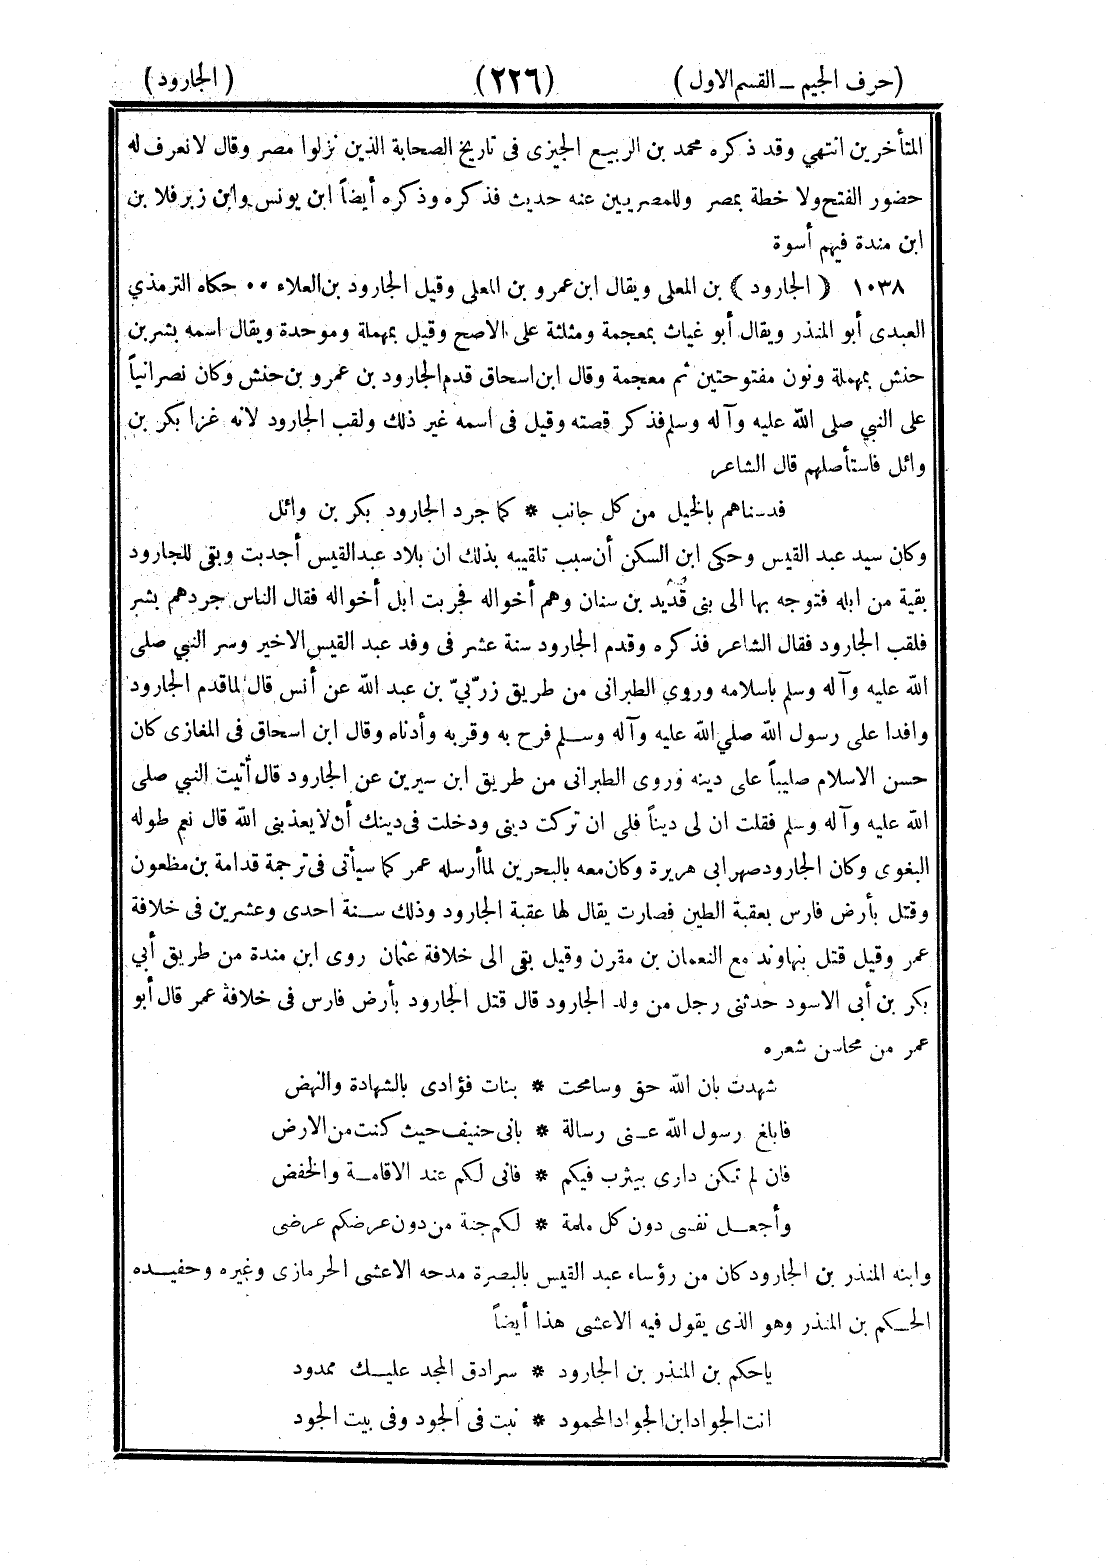 (حرف الجيم ـ القسم الاول)
(٢٢٦)
(الجارود)
المتأخرين انتهي وقد ذكره محمد بن الربيع الجيزى فى تاريخ الصحابة الذين نزلوا مصر وقال لا نعرف له
حضور الفتح ولا خطة بمصر وللمصريين عنه حديث فذكره وذكره أيضاً ابن يونس وابن زبر فلا بن
ابن مندة فيهم أسوة
١٠٣٨ ﴿ الجارود ﴾ بن المعلى ويقال ابن عمرو بن المعلي وقيل الجارود بن العلاء ٠٠ حكاه الترمذي
العبدى أبو المنذر ويقال أبو غياث بمعجمة ومثلثة على الاصح وقيل بمهملة وموحدة ويقال اسمه بشر بن
حنش بمهملة ونون مفتوحتين ثم معجمة وقال ابن اسحاق قدم الجارود بن عمرو بن حنش وكان نصرانياً
على النبي صلى الله عليه وآله وسلم فذكر قصته وقيل فى اسمه غير ذلك ولقب الجارود لانه غزا بكر بن
وائل فاستأصلهم قال الشاعر
فدسناهم بالخيل من كل جانب * كما جرد الجارود بكر بن وائل
وكان سيد عبد القيس وحكى ابن السكن أن سبب تلقيبه بذلك ان بلاد عبد القيس أجدبت وبقى للجارود
بقية من ابله فتوجه بها الى بنى قُدَيد بن سنان وهم أخواله فجربت ابل أخواله فقال الناس جردهم بشر
فلقب الجارود فقال الشاعر فذكره وقدم الجارود سنة عشر فى وفد عبد القيس الاخير وسر النبي صلى
الله عليه وآله وسلم باسلامه وروي الطبرانى من طريق زربيّ بن عبد الله عن أنس قال لما قدم الجارود
وافدا على رسول الله صلي الله عليه وآله وسلم فرح به وقربه وأدناه وقال ابن اسحاق فى المغازى كان
حسن الاسلام صليباً على دينه وروى الطبرانى من طريق ابن سيرين عن الجارود قال أتيت النبي صلى
الله عليه وآله وسلم فقلت ان لى ديناً فلى ان تركت دينى ودخلت فى دينك أن لا يعذبنى الله قال نعم طوله
البغوى وكان الجارود صهر ابى هريرة وكان معه بالبحرين لما أرسله عمر كما سيأتى فى ترجمة قدامة بن مظعون
وقتل بأرض فارس بعقبة الطين فصارت يقال لها عقبة الجارود وذلك سنة احدى وعشرين فى خلافة
عمر وقيل قتل بنهاوند مع النعمان بن مقرن وقيل بقى الى خلافة عثمان روى ابن مندة من طريق أبي
بكر بن أبى الاسود حدثنى رجل من ولد الجارود قال قتل الجارود بأرض فارس فى خلافة عمر قال أبو
عمر من محاسن شعره
شهدت بان الله حق وسامحت * بنات فؤادى بالشهادة والنهض
فابلغ رسول الله عنى رسالة * بانى حنيف حيث كنت من الارض
فان لم تكن دارى بيثرب فيكم * فانى لكم عند الاقامة والخفض
وأجعل نفسى دون كل ملمة * لكم جنة من دون عرضكم عرضى
وابنه المنذر بن الجارود كان من رؤساء عبد القيس بالبصرة مدحه الاعشى الحرمازى وغيره وحفيده
الحكم بن المنذر وهو الذى يقول فيه الاعشى هذا أيضاً
ياحكم بن المنذر بن الجارود * سرادق المجد عليك ممدود
انت الجواد ابن الجواد المحمود * نبت فى الجود وفى بيت الجود